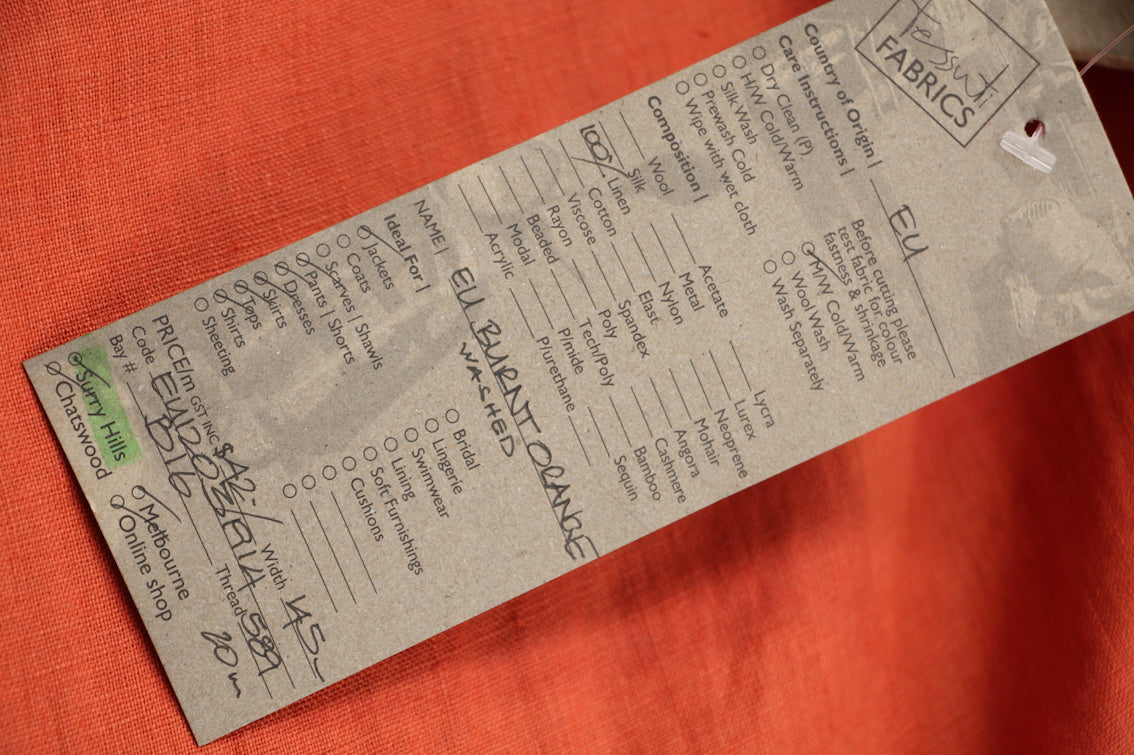 Tessuti
FABRICS
Country of Origin | EU
Care Instructions | Before cutting please
test fabric for colour
fastness & shrinkage
Dry Clean (P) M/W Cold/Warm
H/W Cold/Warm Wool Wash
Silk Wash Wash Separately
Prewash Cold
Wipe with wet cloth
Composition |
Wool Acetate Lycra
Silk Metal Lurex
100% Linen Nylon Neoprene
Cotton Elast Mohair
Viscose Spandex Angora
Rayon Poly Cashmere
Beaded Tech/Poly Bamboo
Modal P/mide Sequin
Acrylic P/urethane
NAME | EU BURNT ORANGE
WASHED
Ideal For |
Jackets Bridal
Coats Lingerie
Scarves | Shawls Swimwear
Pants | Shorts Lining
Dresses Soft Furnishings
Skirts Cushions
Tops
Shirts
Sheeting
PRICE/m GST INC $42- Width 145
Code Thread 589
Bay # B16 20m
Surry Hills Melbourne
Chatswood Online shop